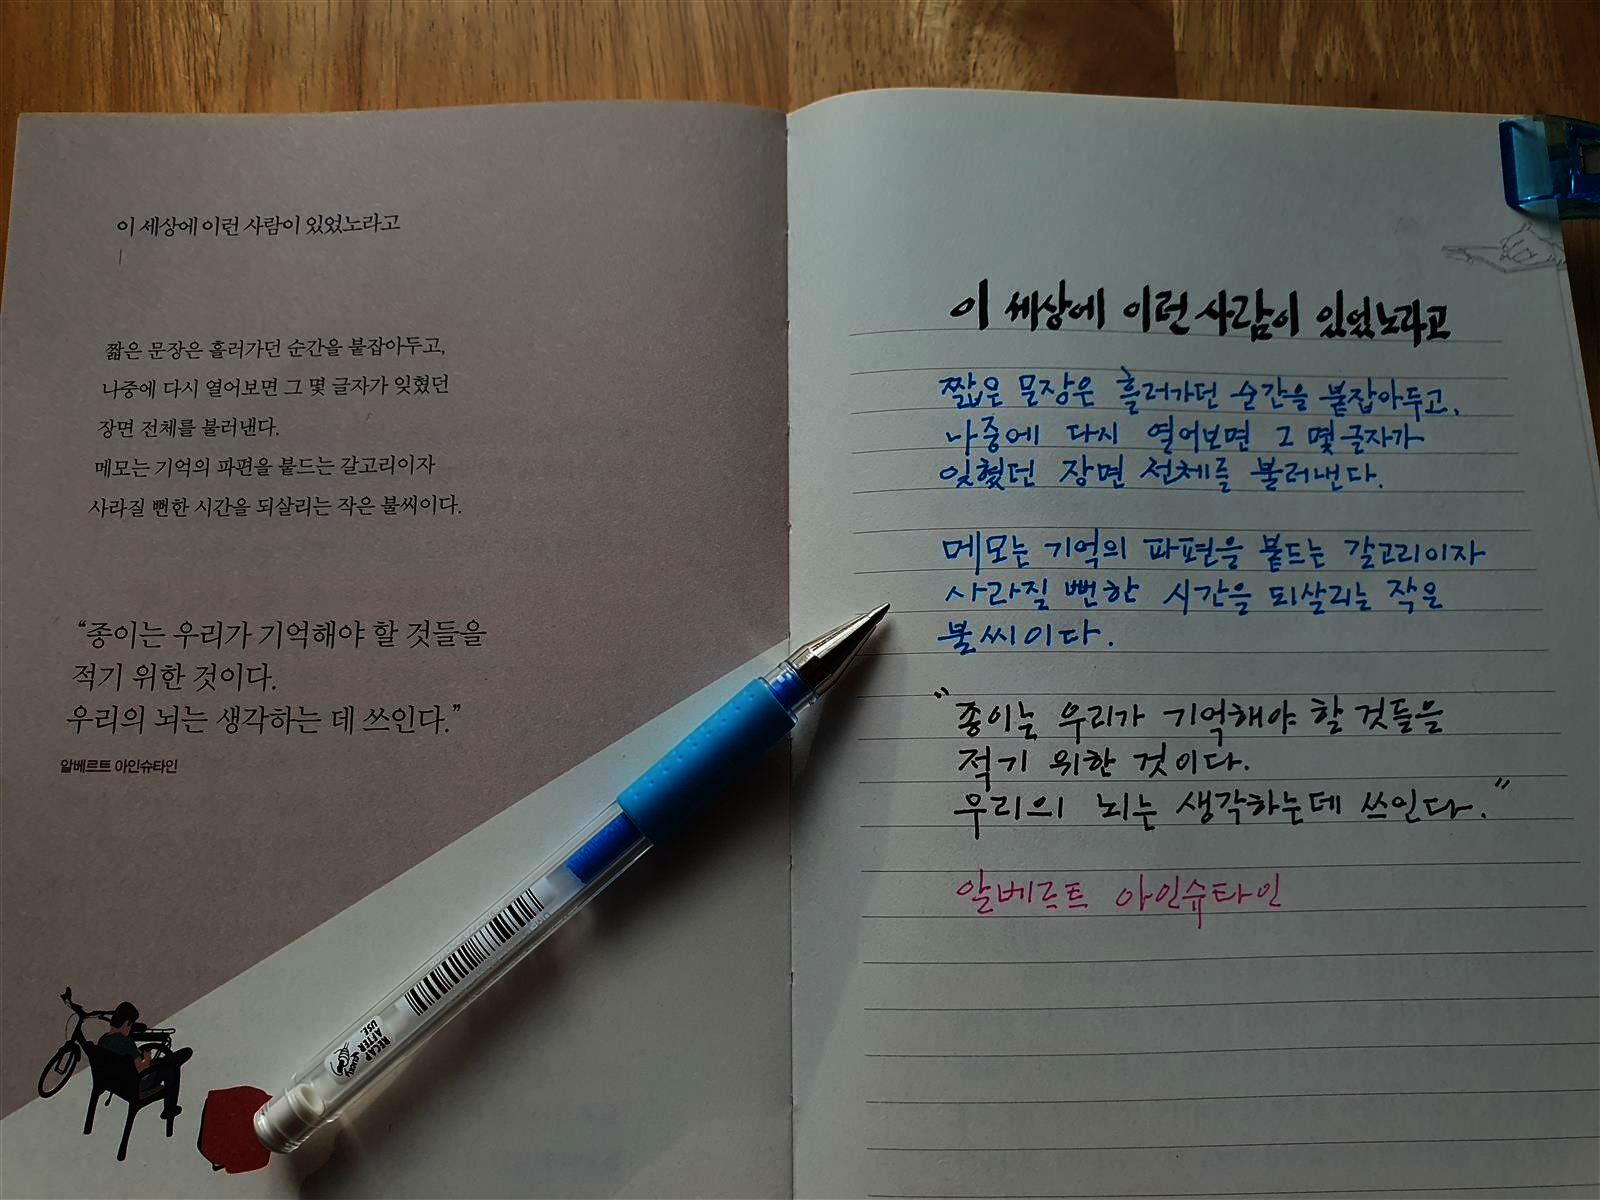 이 세상에 이런 사람이 있었노라고
짧은 문장은 흘러가던 순간을 붙잡아두고,
나중에 다시 열어보면 그 몇 글자가 잊혔던
장면 전체를 불러낸다.
메모는 기억의 파편을 붙드는 갈고리이자
사라질 뻔한 시간을 되살리는 작은 불씨이다.
“종이는 우리가 기억해야 할 것들을
적기 위한 것이다.
우리의 뇌는 생각하는 데 쓰인다.”
알베르트 아인슈타인
이 세상에 이런 사람이 있었노라고
짧은 문장은 흘러가던 순간을 붙잡아두고,
나중에 다시 열어보면 그 몇 글자가
잊혔던 장면 전체를 불러낸다.
메모는 기억의 파편을 붙드는 갈고리이자
사라질 뻔한 시간을 되살리는 작은
불씨이다.
“종이는 우리가 기억해야 할 것들을
적기 위한 것이다.
우리의 뇌는 생각하는데 쓰인다.”
알베르트 아인슈타인
RECAP
AFTER
USE.